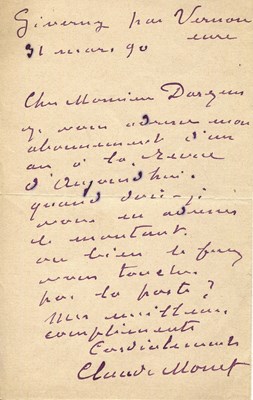 Giverny par Vernon
eure
31 mars 90
Cher Monsieur
je vous adresse mon
abonnement d'un
an à la Revue
d'Aujourd'hui.
quand dois-je
vous en adresser
le montant
ou bien le
vous toucher
par la poste?
Mes meilleurs
compliments
Cordialement
Claude Monet